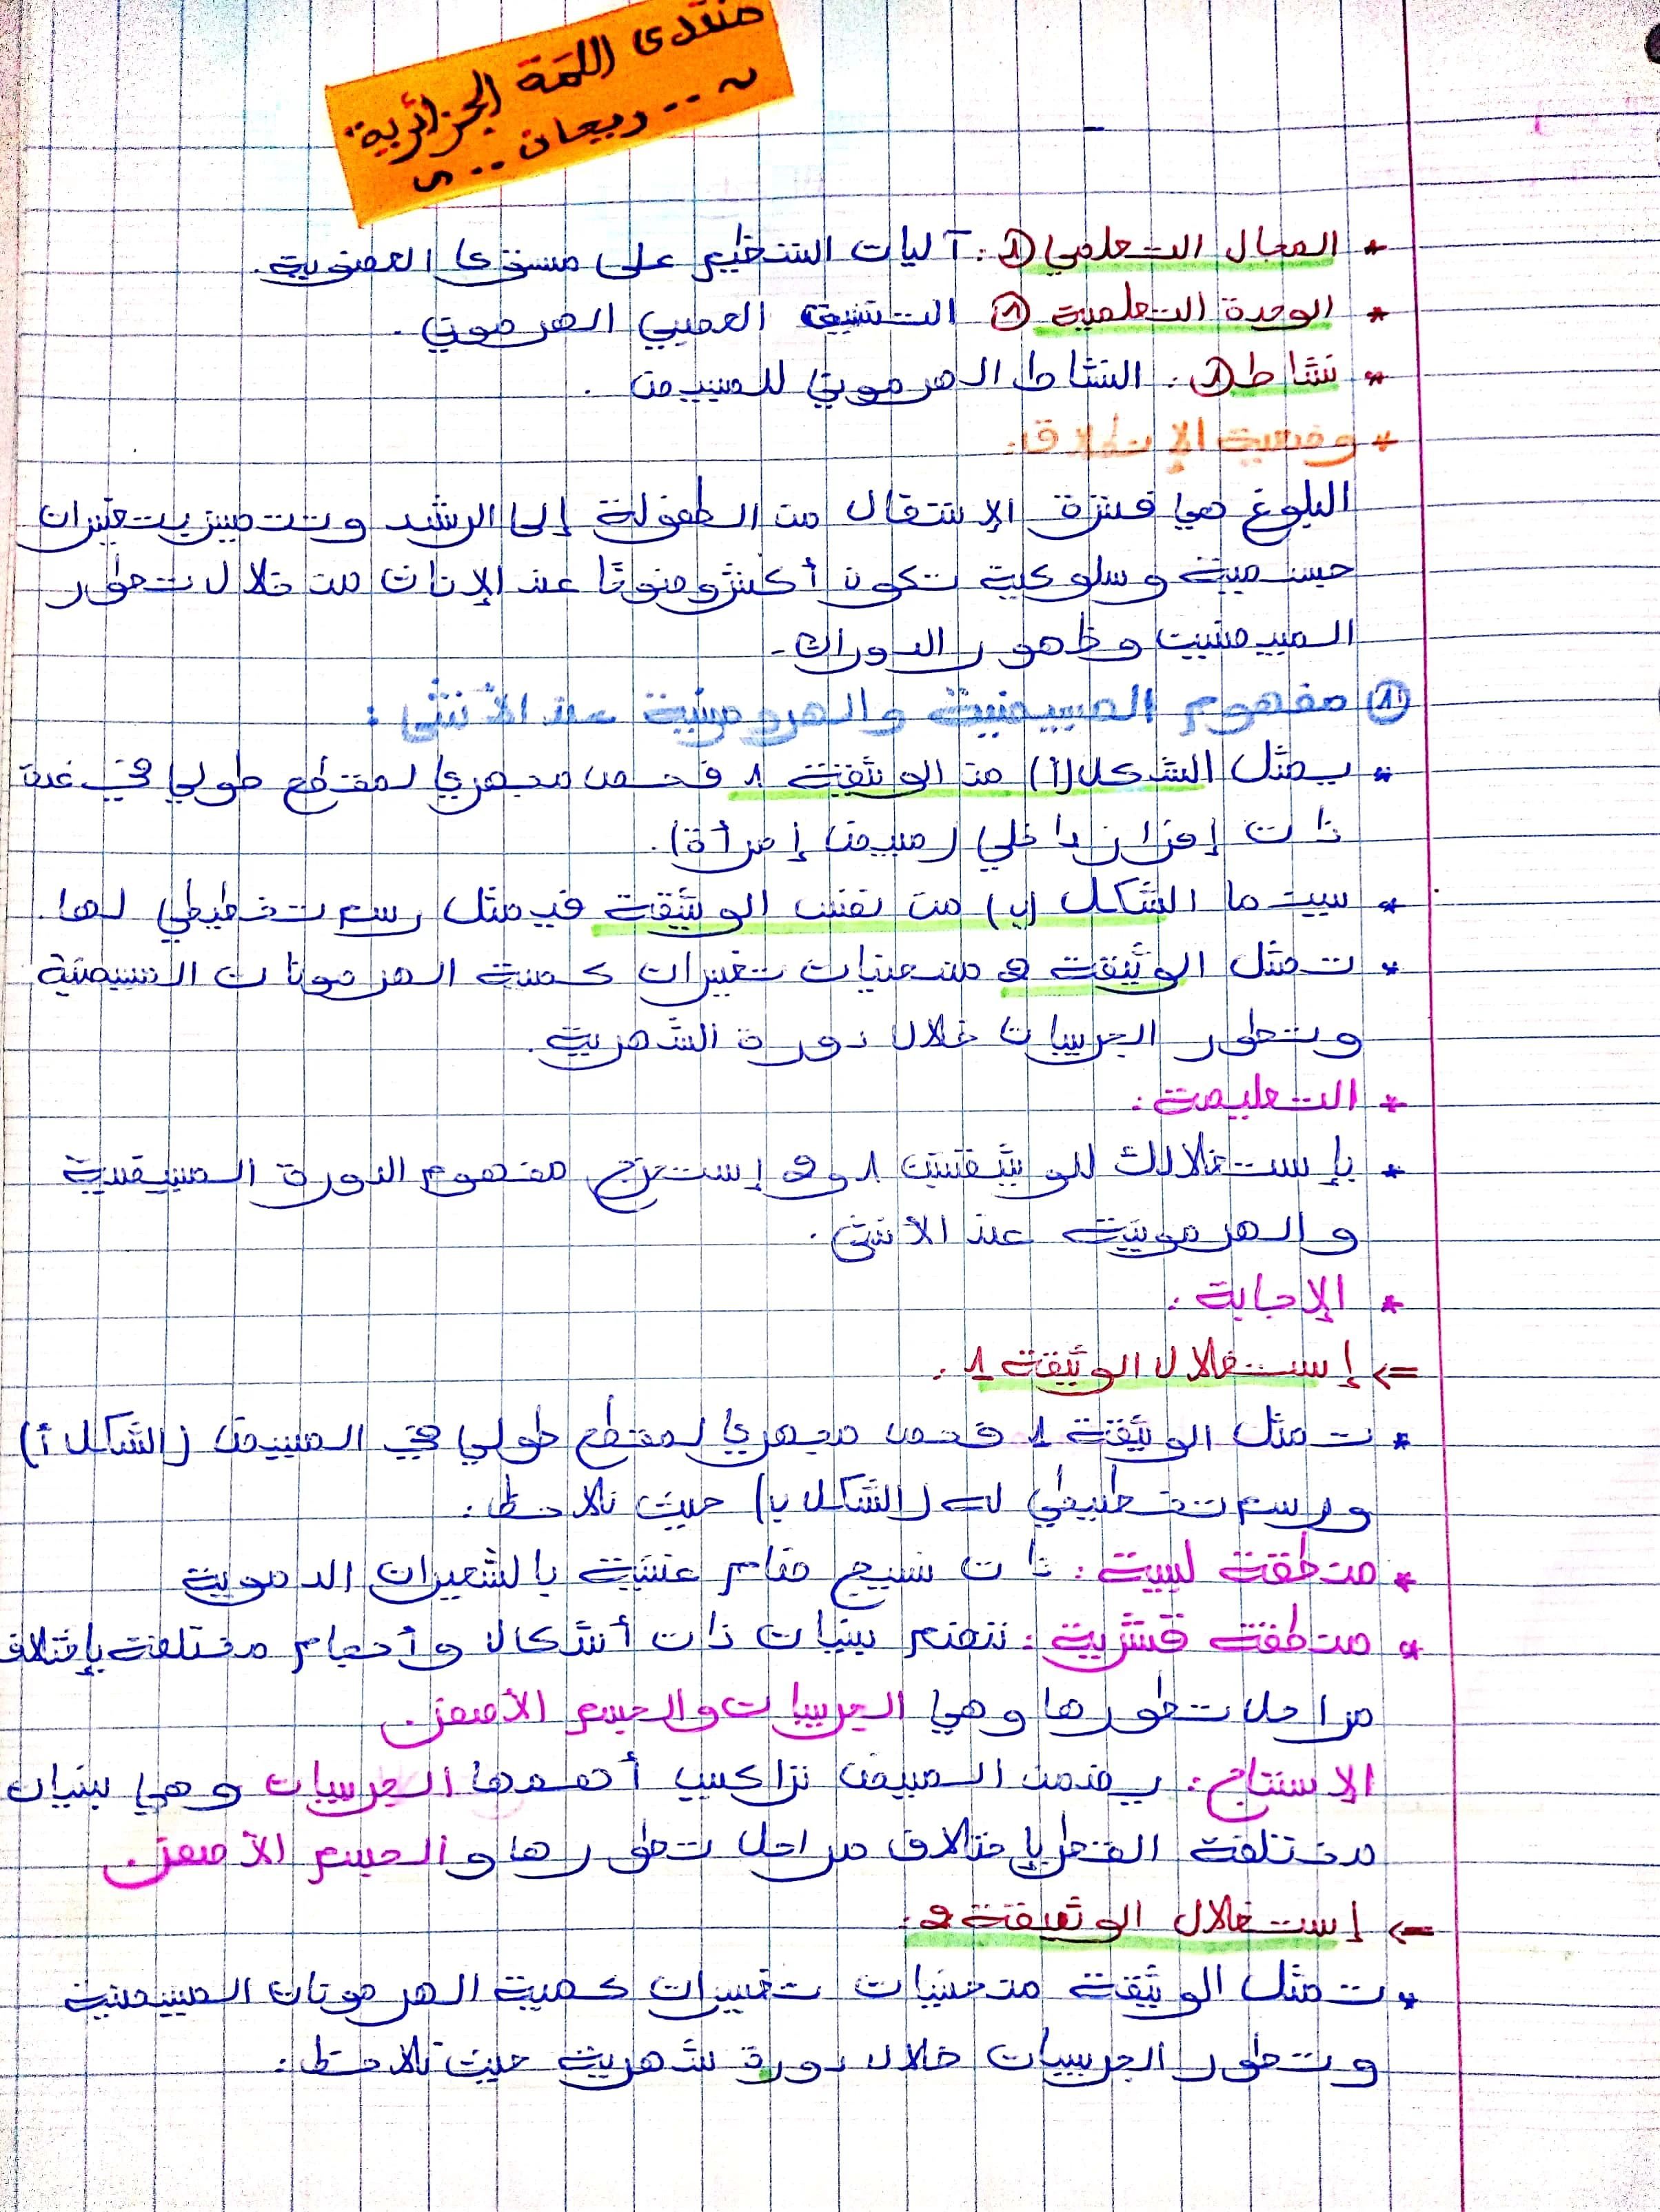 منتدى اللمة الجزائرية
~ .. ريحان .. ~
* المجال التعلمي ①: آليات التنظيم على مستوى العضوية.
* الوحدة التعلمية ① التنسيق العصبي الهرموني.
* نشاط ①: النشاط الهرموني للمبيض.
* وضعية الإنطلاق:
البلوغ هي فترة الإنتقال من الطفولة إلى الرشد وتتميز بتغيرات
جسمية وسلوكية تكون أكثر وضوحًا عند الإناث من خلال تطور
المبيضين وظهور الدورات.
① مفهوم المبيضية والهرمونية عند الأنثى:
* يمثل الشكل (أ) من الوثيقة 1 فحص مجهري لمقطع طولي في غدة
ذات إفراز داخلي (مبيض إمرأة).
* بينما الشكل (ب) من نفس الوثيقة فيمثل رسم تخطيطي لها.
* تمثل الوثيقة 2 منحنيات تغيرات كمية الهرمونات المبيضية
وتطور الجريبات خلال دورة الشهرية.
* التعليمة:
* بإستغلالك للوثيقتين 1 و 2 إستخرج مفهوم الدورة المبيضية
والهرمونية عند الأنثى.
* الإجابة:
=> إستغلال الوثيقة 1:
* تمثل الوثيقة 1 فحص مجهري لمقطع طولي في المبيض (الشكل أ)
ورسم تخطيطي له (الشكل ب) حيث نلاحظ:
* منطقة لبية: ذات نسيج ضام غنية بالشعيرات الدموية
* منطقة قشرية: تضم بنيات ذات أشكال وأحجام مختلفة بإختلاف
مراحل تطورها وهي الجريبات والجسم الأصفر.
الإستنتاج: يضمن المبيض تراكيب أهمها الجريبات وهي بنيات
مختلفة القطر بإختلاف مراحل تطورها والجسم الأصفر.
=> إستغلال الوثيقة 2:
* تمثل الوثيقة منحنيات تغيرات كمية الهرمونات المبيضية
وتطور الجريبات خلال دورة شهرية حيث نلاحظ: